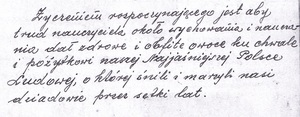 Życzeniem rozpoczynającego jest aby
trud nauczyciela około wychowania i naucza-
nia dał zdrowe i obfite owoce ku chwale
i pożytkowi naszej Najjaśniejszej Polsce
Ludowej, o której śnili i marzyli nasi
dziadowie przez setki lat.